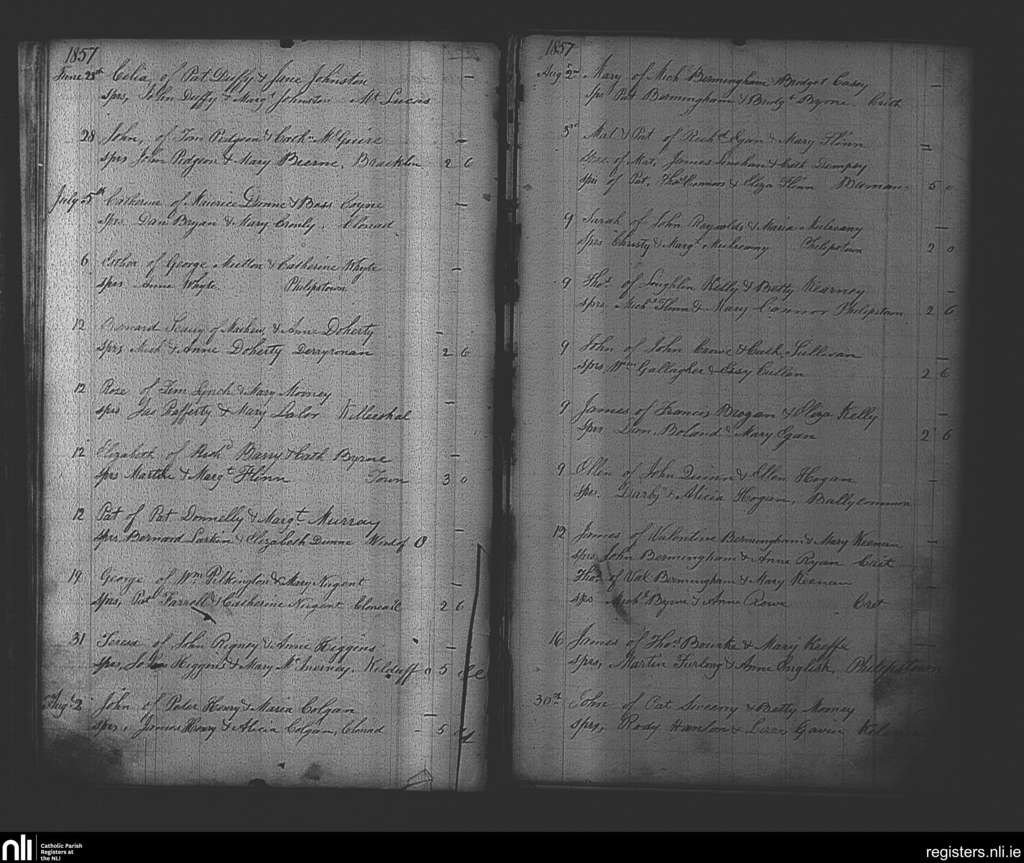 1857
June 28th Celia of Pat Duffy & Jane Johnston
Sprs, John Duffy & Margt Johnston Mt Lucas
28 John, of Tom Pidgeon & Cath McGuire
Sprs John Pidgeon & Mary Beirne, Bracklin 2 6
July 5th Catherine of Maurice Dunne & Bess Coyne
Sprs Dan Bryan & Mary Cronly, Clonad
6 Esther of George Mutton & Catherine Whyte
Sprs Anne Whyte Philipstown
12 Bernard of Mathew & Anne Doherty
Sprs Mich & Anne Doherty Derrycronan 2 6
12 Rose of Jem Lynch & Mary Mooney
Sprs Jas Rafferty & Mary Lalor Killeeshal
12 Elizabeth of Richd Barry & Cath Byrne
Sprs Martin & Margt Flinn Town 3 0
12 Pat of Pat Donnelly & Margt Murray
Sprs Bernard Larkin & Elizabeth Dunne
19 George of Wm Pilkington & Mary Nugent
Sprs, Pat Farrell & Catherine Nugent Cloncait 2 6
31 Teresa of John Rigney & Anne Higgins
Sprs, John Higgins & Mary McInerney, Kilduff 5
Augt 2 John of Peter Henry & Maria Colgan
Sprs, James Henry & Alicia Colgan, Clonad 5
1857
Aug 2nd Mary of Mich Bermingham & Bridget Casey
Sprs Pat Bermingham & Bridgt Byrne
5th Mat & Pat of Richd Egan & Mary Flinn
Sprs. of Mat, James & Cath Dempsy
Sprs of Pat, Thos Connors & Eliza Flinn 5 0
9 Sarah of John Raynolds & Maria Mulvany
Sprs Christy & Margt Mulvany Philipstown 2 0
9 Thos of Loughlin Kelly & Betty Kearney
Sprs Michl Flinn & Mary Connor Philipstown 2 6
9 John of John Crowe & Cath Sullivan
Sprs Wm Gallagher & Essy Cullen 2 6
9 James of Francis Brogan & Eliza Kelly
Sprs Boland & Mary Egan 2 6
9 Ellen of John Quinn & Ellen Hogan
Sprs. Darby & Alicia Hogan, Ballycommon
12 James of Valentine Bermingham & Mary Keenan
Sprs John Bermingham & Anne Ryan
Thos of Val Bermingham & Mary Keenan
Sprs Michl Byrne & Anne Rowe
16 James of Thos Bourke & Mary Keeffe
Sprs, Martin Furlong & Anne English, Philipstown
30th John of Pat Sweeny & Betty Mooney
Sprs, Rody Hanlon & Gavin
nli
Catholic Parish
Registers at
the NLI
registers.nli.ie